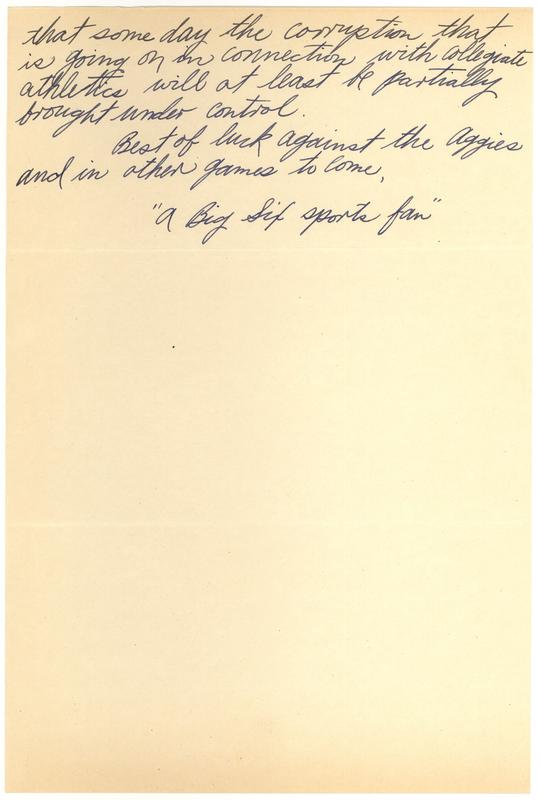 that some day the corruption that
is going on in connection with collegiate
athletics will at least be partially
brought under control.
Best of luck against the Aggies
and in other games to come,
"A Big Six sports fan"